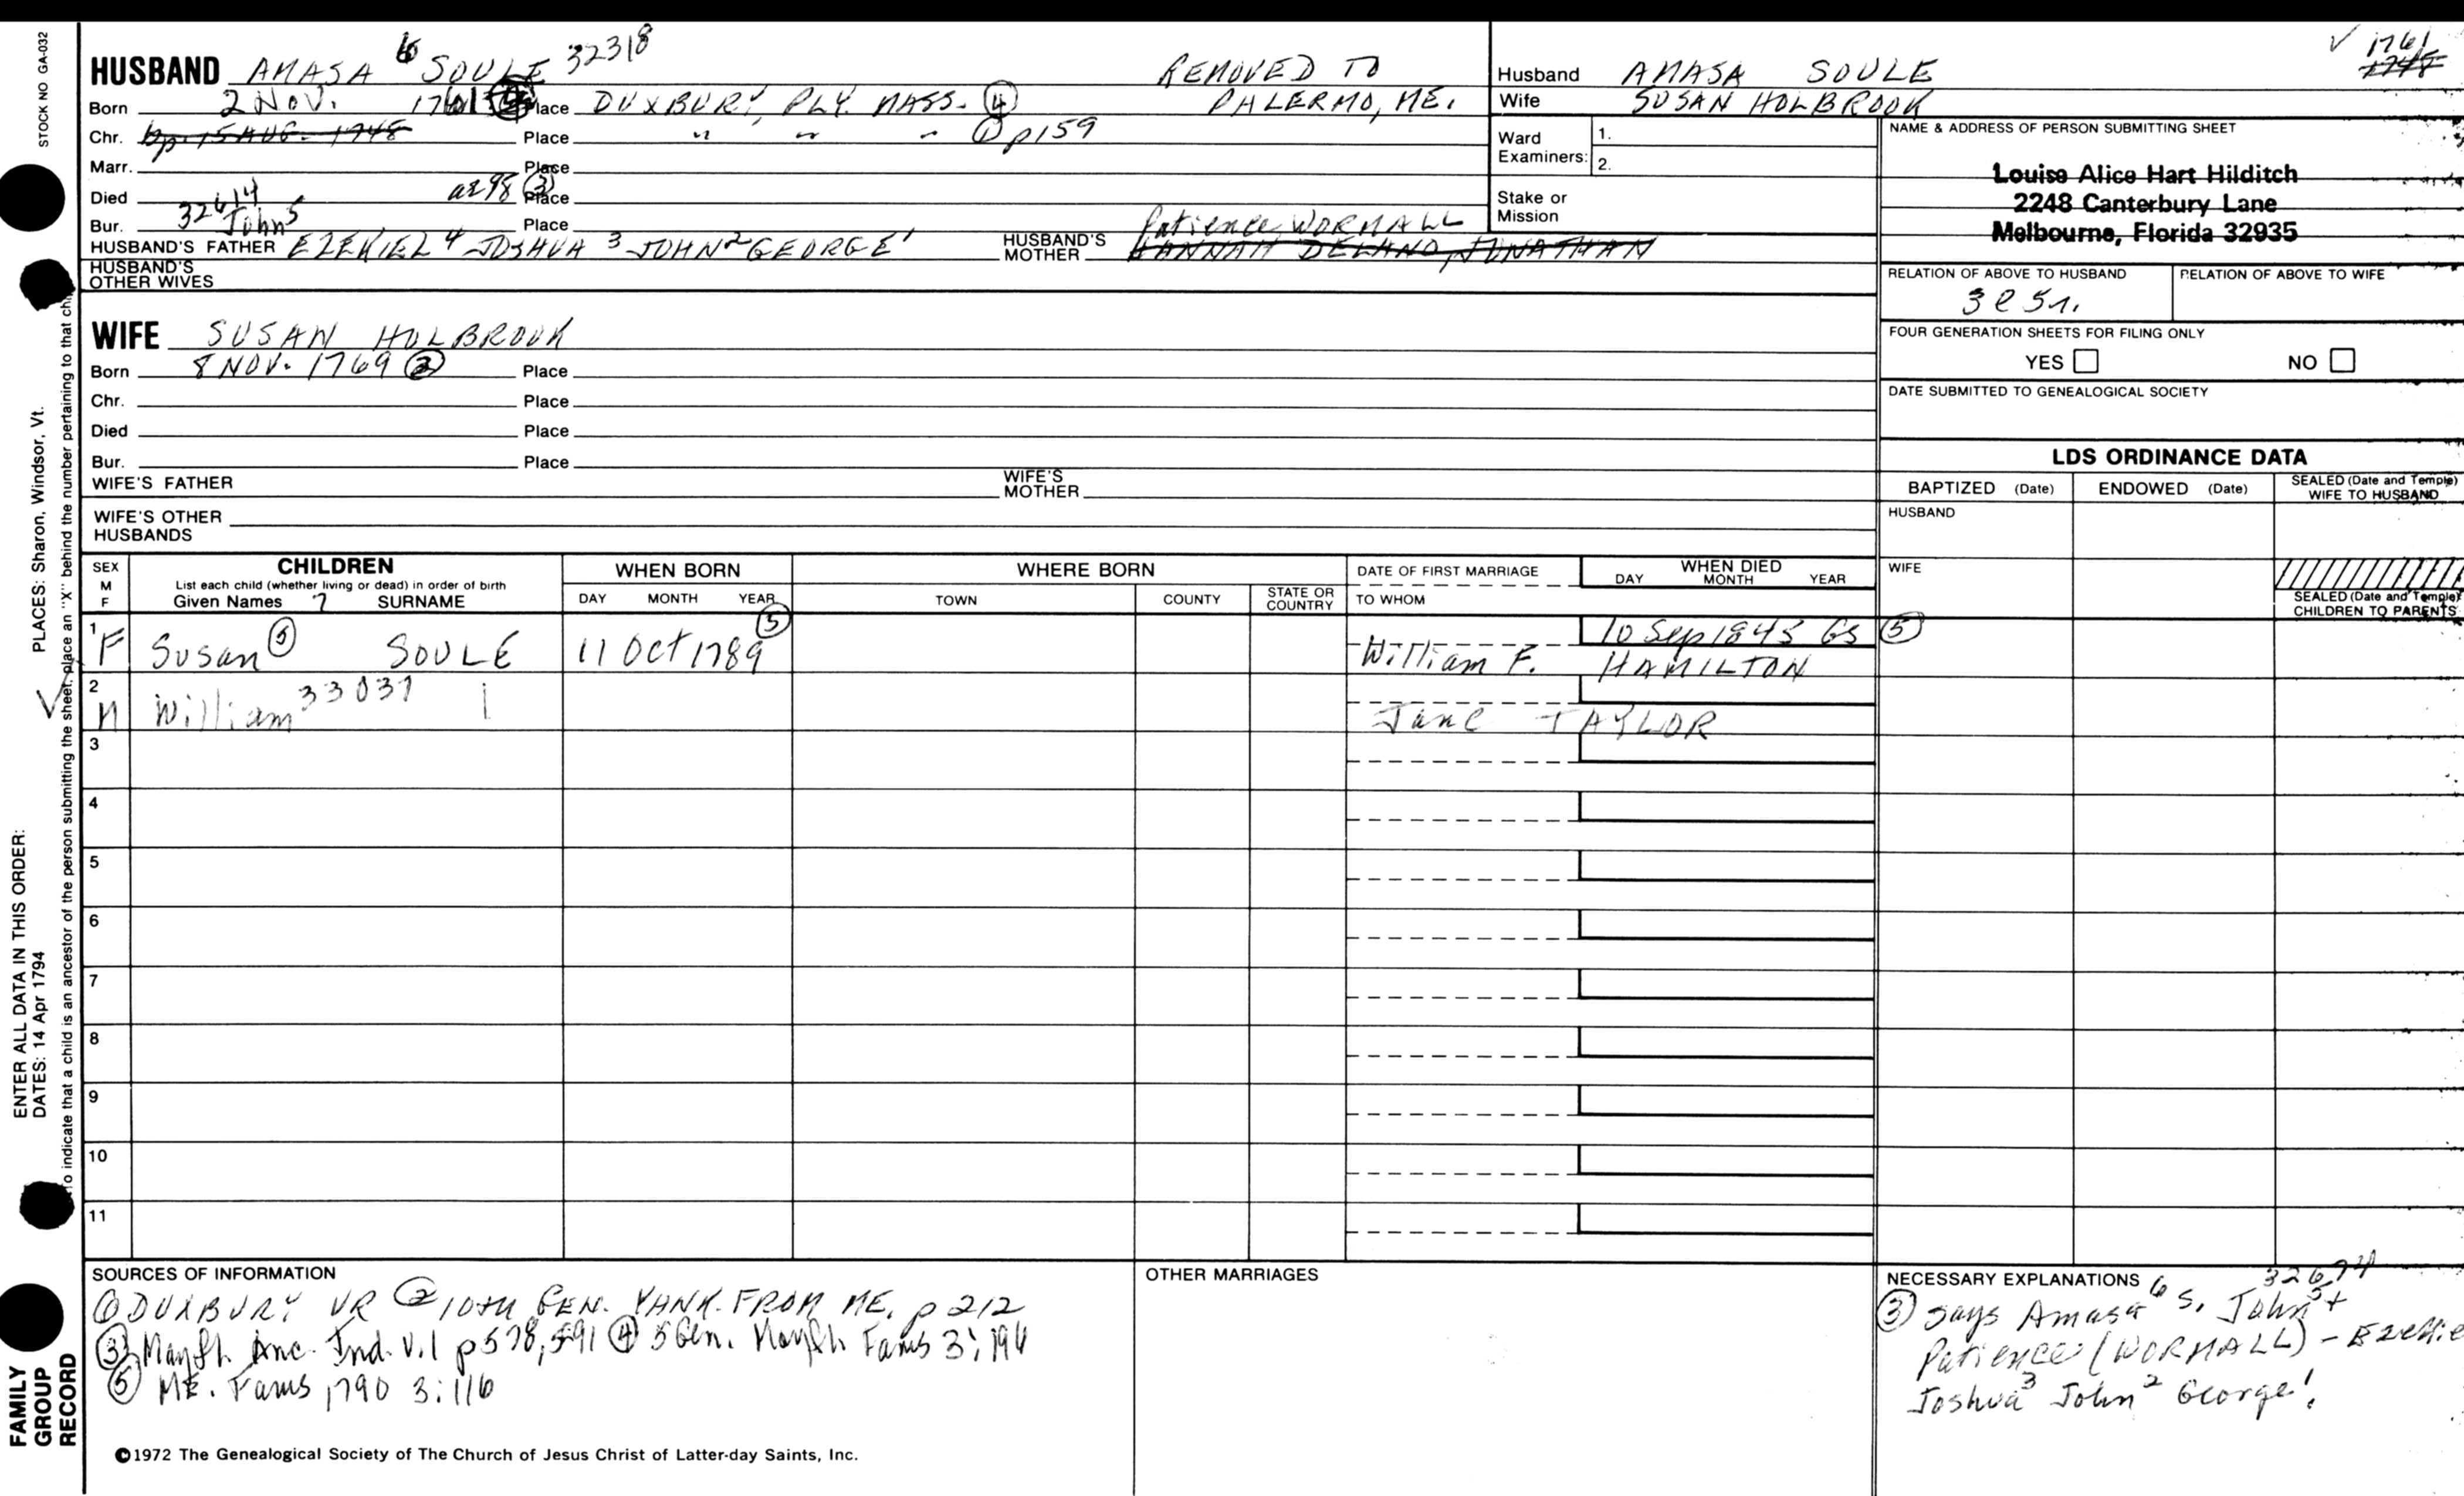 STOCK NO GA-032
HUSBAND AMASA 6 SOULE 32318
REMOVED TO
PALERMO, ME.
Born 2 NOV. 1761 Place DUXBURY, PLY. MASS. ④
Chr. bp. 15 AUG. 1748 Place " " " ① p159
Marr. Place
Died at 98 ③ Place
Bur. Place
32614
John5
HUSBAND'S FATHER EZEKIEL 4 JOSHUA 3 JOHN 2 GEORGE 1
HUSBAND'S MOTHER Patience WORMALL
HANNAH DELAND, JONATHAN
HUSBAND'S OTHER WIVES
WIFE SUSAN HOLBROOK
Born 8 NOV. 1769 ② Place
Chr. Place
Died Place
Bur. Place
WIFE'S FATHER
WIFE'S MOTHER
WIFE'S OTHER HUSBANDS
Husband AMASA SOULE
Wife SUSAN HOLBROOK
✓ 1761
1748
Ward Examiners: 1.
2.
Stake or Mission
NAME & ADDRESS OF PERSON SUBMITTING SHEET
Louise Alice Hart Hilditch
2248 Canterbury Lane
Melbourne, Florida 32935
RELATION OF ABOVE TO HUSBAND
RELATION OF ABOVE TO WIFE
FOUR GENERATION SHEETS FOR FILING ONLY
YES □ NO □
DATE SUBMITTED TO GENEALOGICAL SOCIETY
LDS ORDINANCE DATA
BAPTIZED (Date) ENDOWED (Date) SEALED (Date and Temple) WIFE TO HUSBAND
HUSBAND
WIFE
SEALED (Date and Temple) CHILDREN TO PARENTS
SEX M F
CHILDREN
List each child (whether living or dead) in order of birth
Given Names 7 SURNAME
WHEN BORN
DAY MONTH YEAR
WHERE BORN
TOWN COUNTY STATE OR COUNTRY
DATE OF FIRST MARRIAGE
TO WHOM
WHEN DIED
DAY MONTH YEAR
1 F Susan ⑤ SOULE 11 Oct 1789 ⑤ 10 Sep 1845 GS ⑤
William F. HAMILTON
2 M William 33037
Jane TAYLOR
3
4
5
6
7
8
9
10
11
SOURCES OF INFORMATION
① DUXBURY VR ② 10TH GEN. YANK. FROM ME. p 212
③ Mayfl. Anc. Ind. V.1 p 578, 591 ④ 5 Gen. Mayfl Fams 3:194
⑤ ME. Fams 1790 3:116
OTHER MARRIAGES
NECESSARY EXPLANATIONS
32674
③ says Amasa 6 s. John 5 +
Patience (WORMALL) -
Joshua 3 John 2 George 1
©1972 The Genealogical Society of The Church of Jesus Christ of Latter-day Saints, Inc.
PLACES: Sharon, Windsor, Vt.
ENTER ALL DATA IN THIS ORDER:
DATES: 14 Apr 1794
To indicate that a child is an ancestor of the person submitting the sheet, place an "X" behind the number pertaining to that
FAMILY
GROUP
RECORD